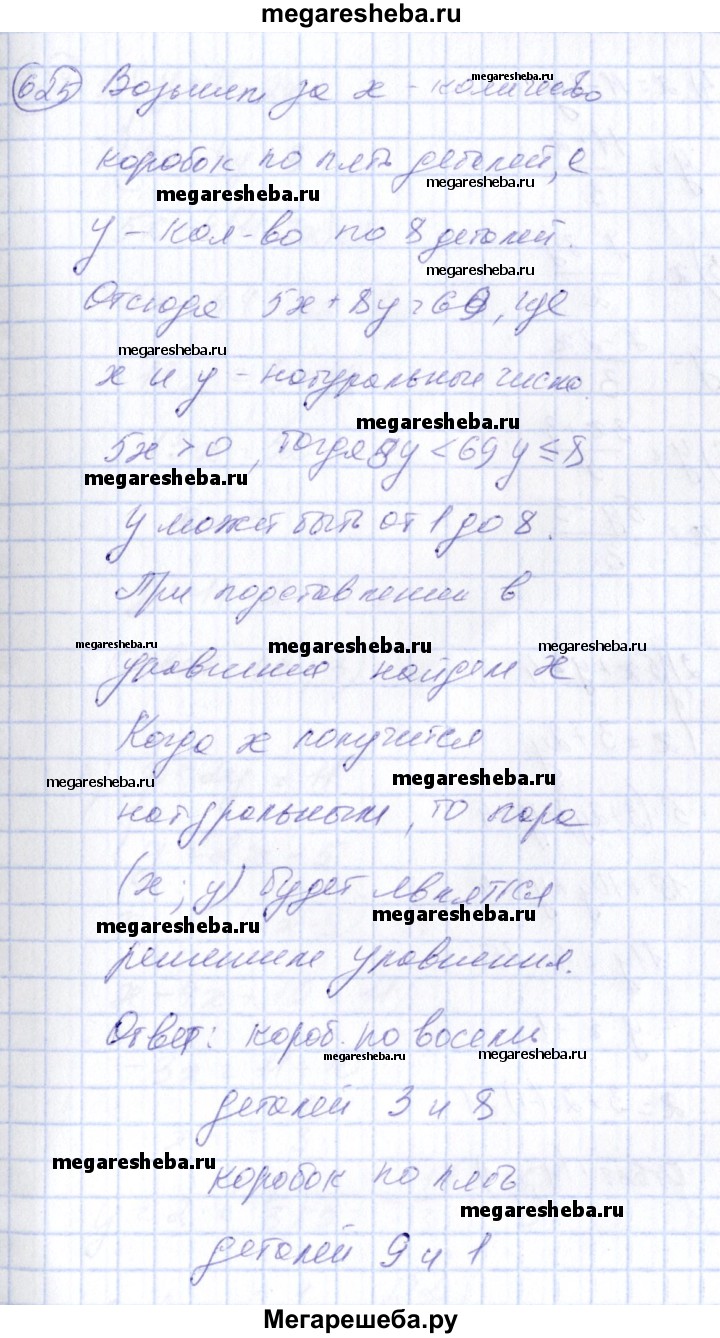 megaresheba.ru
625 Возьмем за x - количество
megaresheba.ru
коробок по пять деталей, а
megaresheba.ru
megaresheba.ru
y - кол-во по 8 деталей.
megaresheba.ru
Отсюда 5x + 8y = 69, где
megaresheba.ru
x и y - натуральные числа.
megaresheba.ru
5x > 0, тогда 8y < 69 y ≤ 8
megaresheba.ru
y может быть от 1 до 8.
При подставлении в
megaresheba.ru megaresheba.ru megaresheba.ru
найдем x.
Когда x получится
megaresheba.ru megaresheba.ru
натуральным, то пара
(x; y) будет являться
megaresheba.ru megaresheba.ru
решением уравнения.
Ответ: короб. по восемь
megaresheba.ru megaresheba.ru
деталей 3 и 8
megaresheba.ru
коробок по пять
megaresheba.ru
деталей 9 и 1
Мегарешеба.ру